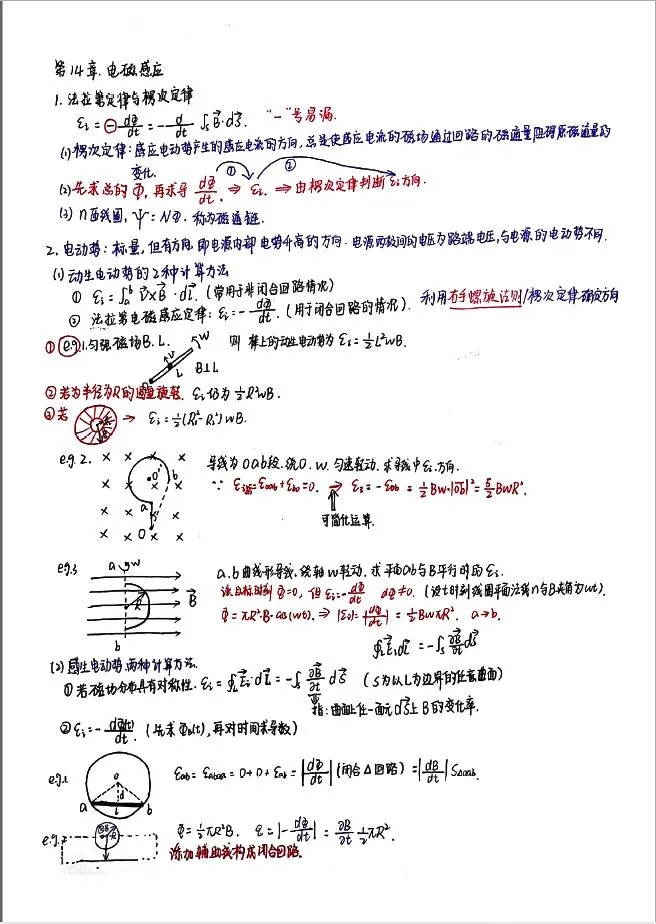 第14章.电磁感应
1.法拉第定律与楞次定律
εi = -dΦ/dt = -d/dt ∫s B⃗·dS⃗. "-"号易漏.
(1)楞次定律:感应电动势产生的感应电流的方向,总是使感应电流的磁场通过回路的磁通量阻碍原磁通量的
变化. ① ②
(2)先求总的Φ,再求导 dΦ/dt. ⇒ εi. ⇒由楞次定律判断εi方向.
(3) n匝线圈, Ψ=NΦ. 称为磁通链.
2.电动势:标量,但有方向,即电源内部电势升高的方向.电源两极间的电压为路端电压,与电源的电动势不同.
(1)动生电动势的2种计算方法
① εi=∫ₐᵇ V⃗×B⃗·dL⃗.(常用于非闭合回路情况)
② 法拉第电磁感应定律:εi=-dΦ/dt.(用于闭合回路的情况). 利用右手螺旋法则/楞次定律确定方向
①e.g.1.匀强磁场B.L. V W L O B⊥L 则 棒上的动生电动势为 εi=½L²wB.
②若为半径为R的圆盘旋转. εi仍为½R²wB.
③若 → εi=½(R₁²-R₂²)wB.
e.g.2. O' b a O 导线为Oab段.绕O.w.匀速转动.求导线中εi.方向.
∵ εi总=εoab+εbo=0. ⇒ εi=-εob=½Bw·|ob|²=5/2BwR².
可简化运算.
e.g.3 a w R B⃗ b a.b曲线形导线.绕轴w转动.求平面ab与B平行时的εi.
该时刻Φ=0,但εi=-dΦ/dt dΦ≠0.(设t时刻线圈平面法线n与B夹角为wt).
Φ=½πR²·B·cos(wt).⇒|εi|=|dΦ/dt|=½BwπR². a→b.
∮L E⃗i dL⃗ = -∫s ∂B⃗/∂t dS⃗
(2)感生电动势.两种计算方法.
①若磁场分布具有对称性. εi=∮L E⃗i·dL⃗=-∫s ∂B⃗/∂t dS⃗ (S为以L为边界的任意曲面)
指:曲面上任一面元dS⃗上B的变化率.
②εi=-dΦ(t)/dt.(先求Φ(t),再对时间求导数)
e.g.1 o d a L b εab=εoaboa=0+0+εab=|dΦ/dt|(闭合△回路)=|dB/dt|S△oab.
e.g.2 Φ=½πR²B. ε=|-dΦ/dt|=∂B/∂t ½πR².
添加辅助线构成闭合回路.